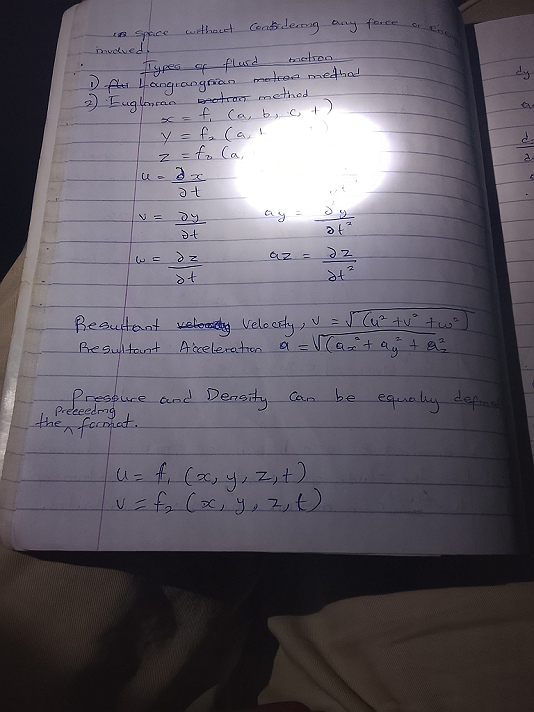 space without Considering any force or
involved.
Types of fluid motion
1) Langrangian method
2) Euglarian method
x = f₁ (a, b, c, t)
y = f₂ (a,
z = f₃ (a,
u = ∂x/∂t
v = ∂y/∂t ay = ∂²y/∂t²
w = ∂z/∂t az = ∂z/∂t²
Resultant Velocity, v = √(u² + v² + w²)
Resultant Acceleration a = √(ax² + ay² + az²
Pressure and Density Can be equally
the Preceeding format.
u = f₁ (x, y, z, t)
v = f₂ (x, y, z, t)